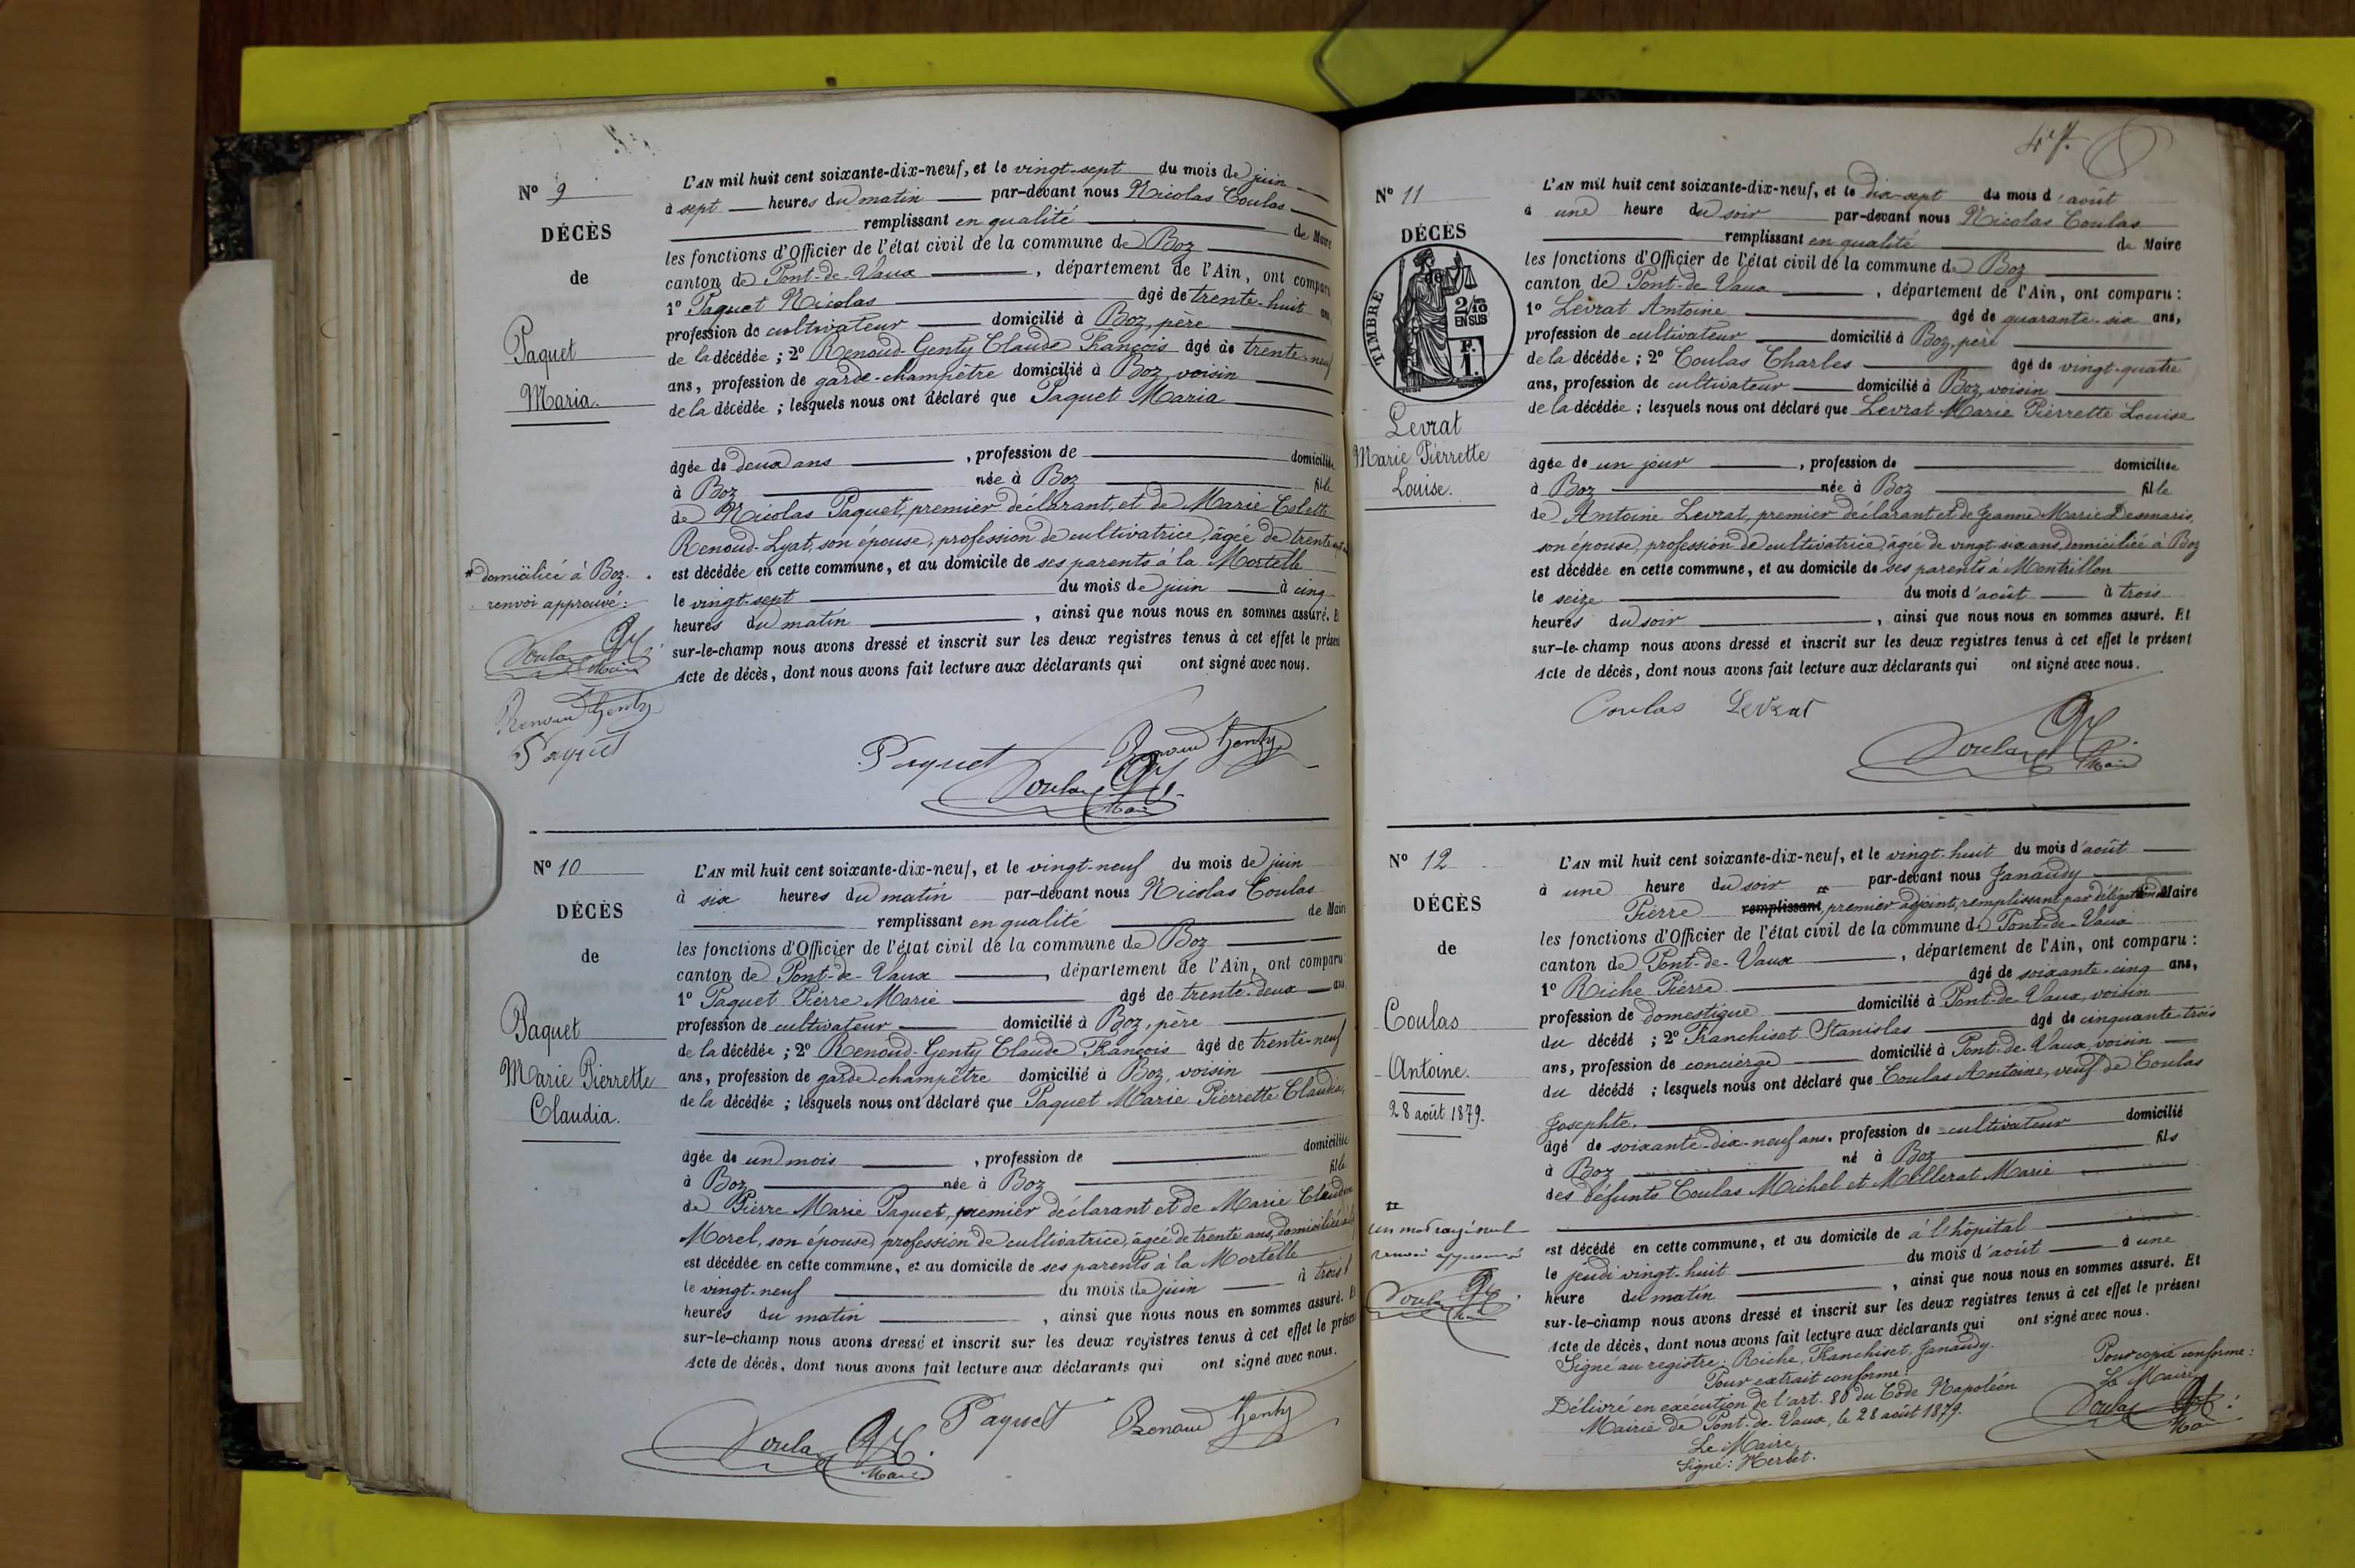 N° 9
DÉCÈS
de
Paquet
Maria.
* domiciliée à Boz.
renvoi approuvé :
Coulas N
Maire
Renoud Genty
Paquet
L'AN mil huit cent soixante-dix-neuf, et le vingt-sept du mois de juin
à sept heures du matin par-devant nous Nicolas Coulas
remplissant en qualité de Maire
les fonctions d'Officier de l'état civil de la commune de Boz
canton de Pont-de-Vaux, département de l'Ain, ont comparu
1° Paquet Nicolas âgé de trente-huit ans
profession de cultivateur domicilié à Boz, père
de la décédée ; 2° Renoud-Genty Claude François âgé de trente-neuf
ans, profession de garde-champêtre domicilié à Boz, voisin
de la décédée ; lesquels nous ont déclaré que Paquet Maria
âgée de deux ans, profession de domiciliée
à Boz née à Boz fille
de Nicolas Paquet, premier déclarant, et de Marie Colette
Renoud-Lyat, son épouse, profession de cultivatrice, âgée de trente
est décédée en cette commune, et au domicile de ses parents à la Mortelle
le vingt-sept du mois de juin à cinq
heures du matin, ainsi que nous nous en sommes assuré. Et
sur-le-champ nous avons dressé et inscrit sur les deux registres tenus à cet effet le présent
Acte de décès, dont nous avons fait lecture aux déclarants qui ont signé avec nous.
Paquet Renoud Genty
Coulas N
Maire
N° 10
DÉCÈS
de
Paquet
Marie Pierrette
Claudia.
L'AN mil huit cent soixante-dix-neuf, et le vingt-neuf du mois de juin
à six heures du matin par-devant nous Nicolas Coulas
remplissant en qualité de Maire
les fonctions d'Officier de l'état civil de la commune de Boz
canton de Pont-de-Vaux, département de l'Ain, ont comparu
1° Paquet Pierre Marie âgé de trente-deux ans
profession de cultivateur domicilié à Boz, père
de la décédée ; 2° Renoud-Genty Claude François âgé de trente-neuf
ans, profession de garde-champêtre domicilié à Boz, voisin
de la décédée ; lesquels nous ont déclaré que Paquet Marie Pierrette Claudia,
âgée de un mois, profession de domiciliée
à Boz née à Boz fille
de Pierre Marie Paquet, premier déclarant et de Marie Claudine
Morel, son épouse, profession de cultivatrice, âgée de trente ans, domiciliée à
est décédée en cette commune, et au domicile de ses parents à la Mortelle
le vingt-neuf du mois de juin à trois
heures du matin, ainsi que nous nous en sommes assuré. Et
sur-le-champ nous avons dressé et inscrit sur les deux registres tenus à cet effet le présent
Acte de décès, dont nous avons fait lecture aux déclarants qui ont signé avec nous.
Coulas N Paquet Renoud Genty
Maire
47.
N° 11
DÉCÈS
de
TIMBRE
2/10
EN SUS
F.
1.
Levrat
Marie Pierrette
Louise.
L'AN mil huit cent soixante-dix-neuf, et le dix-sept du mois d'août
à une heure du soir par-devant nous Nicolas Coulas
remplissant en qualité de Maire
les fonctions d'Officier de l'état civil de la commune de Boz
canton de Pont-de-Vaux, département de l'Ain, ont comparu :
1° Levrat Antoine âgé de quarante-six ans,
profession de cultivateur domicilié à Boz, père
de la décédée ; 2° Coulas Charles âgé de vingt-quatre
ans, profession de cultivateur domicilié à Boz, voisin
de la décédée ; lesquels nous ont déclaré que Levrat Marie Pierrette Louise
âgée de un jour, profession de domiciliée
à Boz née à Boz fille
de Antoine Levrat, premier déclarant et de Jeanne Marie Desmaris,
son épouse, profession de cultivatrice, âgée de vingt-six ans, domiciliée à Boz
est décédée en cette commune, et au domicile de ses parents à Montrillon
le seize du mois d'août à trois
heures du soir, ainsi que nous nous en sommes assuré. Et
sur-le-champ nous avons dressé et inscrit sur les deux registres tenus à cet effet le présent
Acte de décès, dont nous avons fait lecture aux déclarants qui ont signé avec nous.
Coulas Levrat
Coulas N
Maire
N° 12
DÉCÈS
de
Coulas
Antoine.
28 août 1879.
un mot rayé nul
renvoi approuvé
Coulas N
Maire
L'AN mil huit cent soixante-dix-neuf, et le vingt-huit du mois d'août
à une heure du soir par-devant nous Janaudy
Pierre remplissant, premier adjoint, remplissant par délégation de Maire
les fonctions d'Officier de l'état civil de la commune de Pont-de-Vaux
canton de Pont-de-Vaux, département de l'Ain, ont comparu :
1° Riche Pierre âgé de soixante-cinq ans,
profession de domestique domicilié à Pont-de-Vaux, voisin
du décédé ; 2° Franchiset Stanislas âgé de cinquante-trois
ans, profession de concierge domicilié à Pont-de-Vaux, voisin
du décédé ; lesquels nous ont déclaré que Coulas Antoine, veuf de Coulas
Josephte.
âgé de soixante-dix-neuf ans, profession de cultivateur domicilié
à Boz né à Boz fils
des défunts Coulas Michel et Millerat Marie
est décédé en cette commune, et au domicile de à l'hôpital
le jeudi vingt-huit du mois d'août à une
heure du matin, ainsi que nous nous en sommes assuré. Et
sur-le-champ nous avons dressé et inscrit sur les deux registres tenus à cet effet le présent
Acte de décès, dont nous avons fait lecture aux déclarants qui ont signé avec nous.
Signé au registre : Riche, Franchiset, Janaudy.
Pour extrait conforme :
Délivré en exécution de l'art. 80 du Code Napoléon
Mairie de Pont-de-Vaux, le 28 août 1879.
Le Maire,
Signé : Herbet.
Pour copie conforme :
Le Maire,
Coulas N
Ma